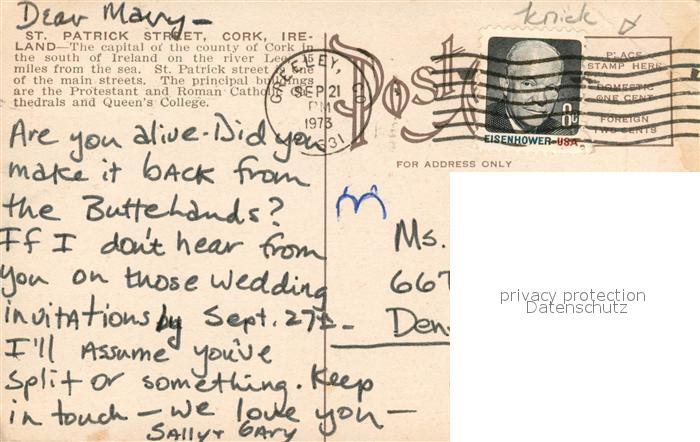 Dear Mary-
knick
ST. PATRICK STREET, CORK, IRE-
LAND—The capital of the county of Cork in
the south of Ireland on the river Lee, 15
miles from the sea. St. Patrick street is one
of the main streets. The principal buildings
are the Protestant and Roman Catholic Ca-
thedrals and Queen's College.
Post
GREELEY, CO
SEP 21
PM
1973
31
8c
EISENHOWER·USA
PLACE
STAMP HERE
DOMESTIC
ONE CENT
FOREIGN
TWO CENTS
FOR ADDRESS ONLY
Are you alive-Did you
make it back from
the Buttelands?
If I don't hear from
you on those wedding
invitations by Sept. 27th-
I'll Assume you've
split or something. Keep
in touch - we love you -
Sally + Gary
Ms.
667
Den
privacy protection
Datenschutz